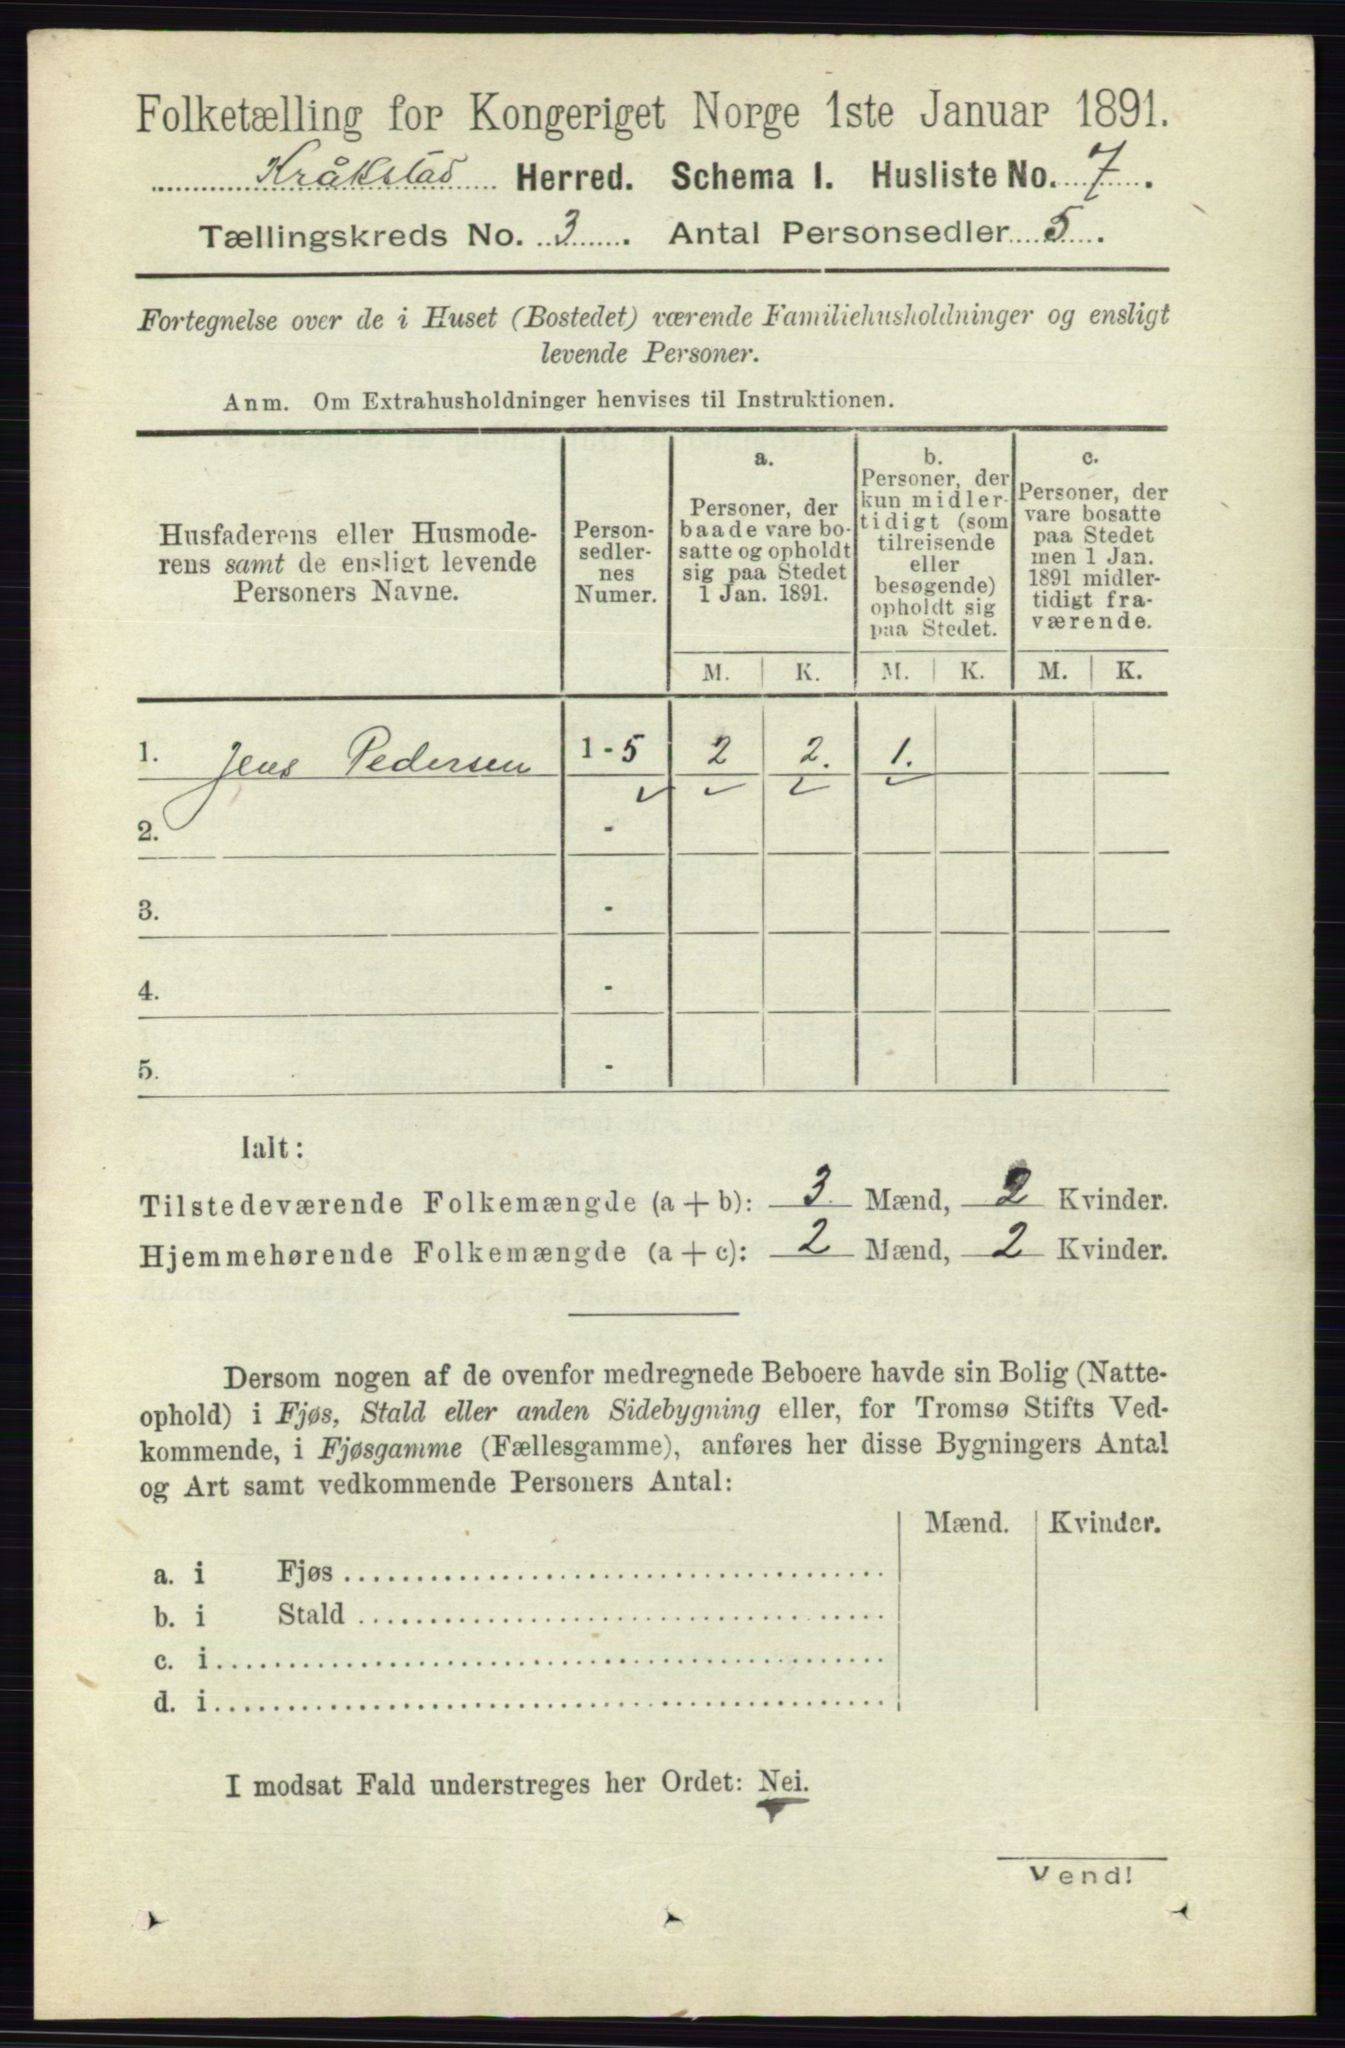 Folketælling for Kongeriget Norge 1ste Januar 1891.
Kråkstad Herred. Schema I. Husliste No. 7.
Tællingskreds No. 3. Antal Personsedler 5.
Fortegnelse over de i Huset (Bostedet) værende Familiehusholdninger og ensligt
levende Personer.
Anm. Om Extrahusholdninger henvises til Instruktionen.
Husfaderens eller Husmode-
rens samt de ensligt levende
Personers Navne.
Person-
sedler-
nes
Numer.
a.
Personer, der
baade vare bo-
satte og opholdt
sig paa Stedet
1 Jan. 1891.
b.
Personer, der
kun midler-
tidigt (som
tilreisende
eller
besøgende)
opholdt sig
paa Stedet.
c.
Personer, der
vare bosatte
paa Stedet
men 1 Jan.
1891 midler-
tidigt fra-
værende.
M. K. M. K. M. K.
1. Jens Pedersen 1 - 5 2 2. 1.
2. -
3. -
4. -
5. -
Ialt:
Tilstedeværende Folkemængde (a + b): 3 Mænd, 2 Kvinder.
Hjemmehørende Folkemængde (a + c): 2 Mænd, 2 Kvinder.
Dersom nogen af de ovenfor medregnede Beboere havde sin Bolig (Natte-
ophold) i Fjøs, Stald eller anden Sidebygning eller, for Tromsø Stifts Ved-
kommende, i Fjøsgamme (Fællesgamme), anføres her disse Bygningers Antal
og Art samt vedkommende Personers Antal:
Mænd. Kvinder.
a. i Fjøs
b. i Stald
c. i
d. i
I modsat Fald understreges her Ordet: Nei.
Vend!